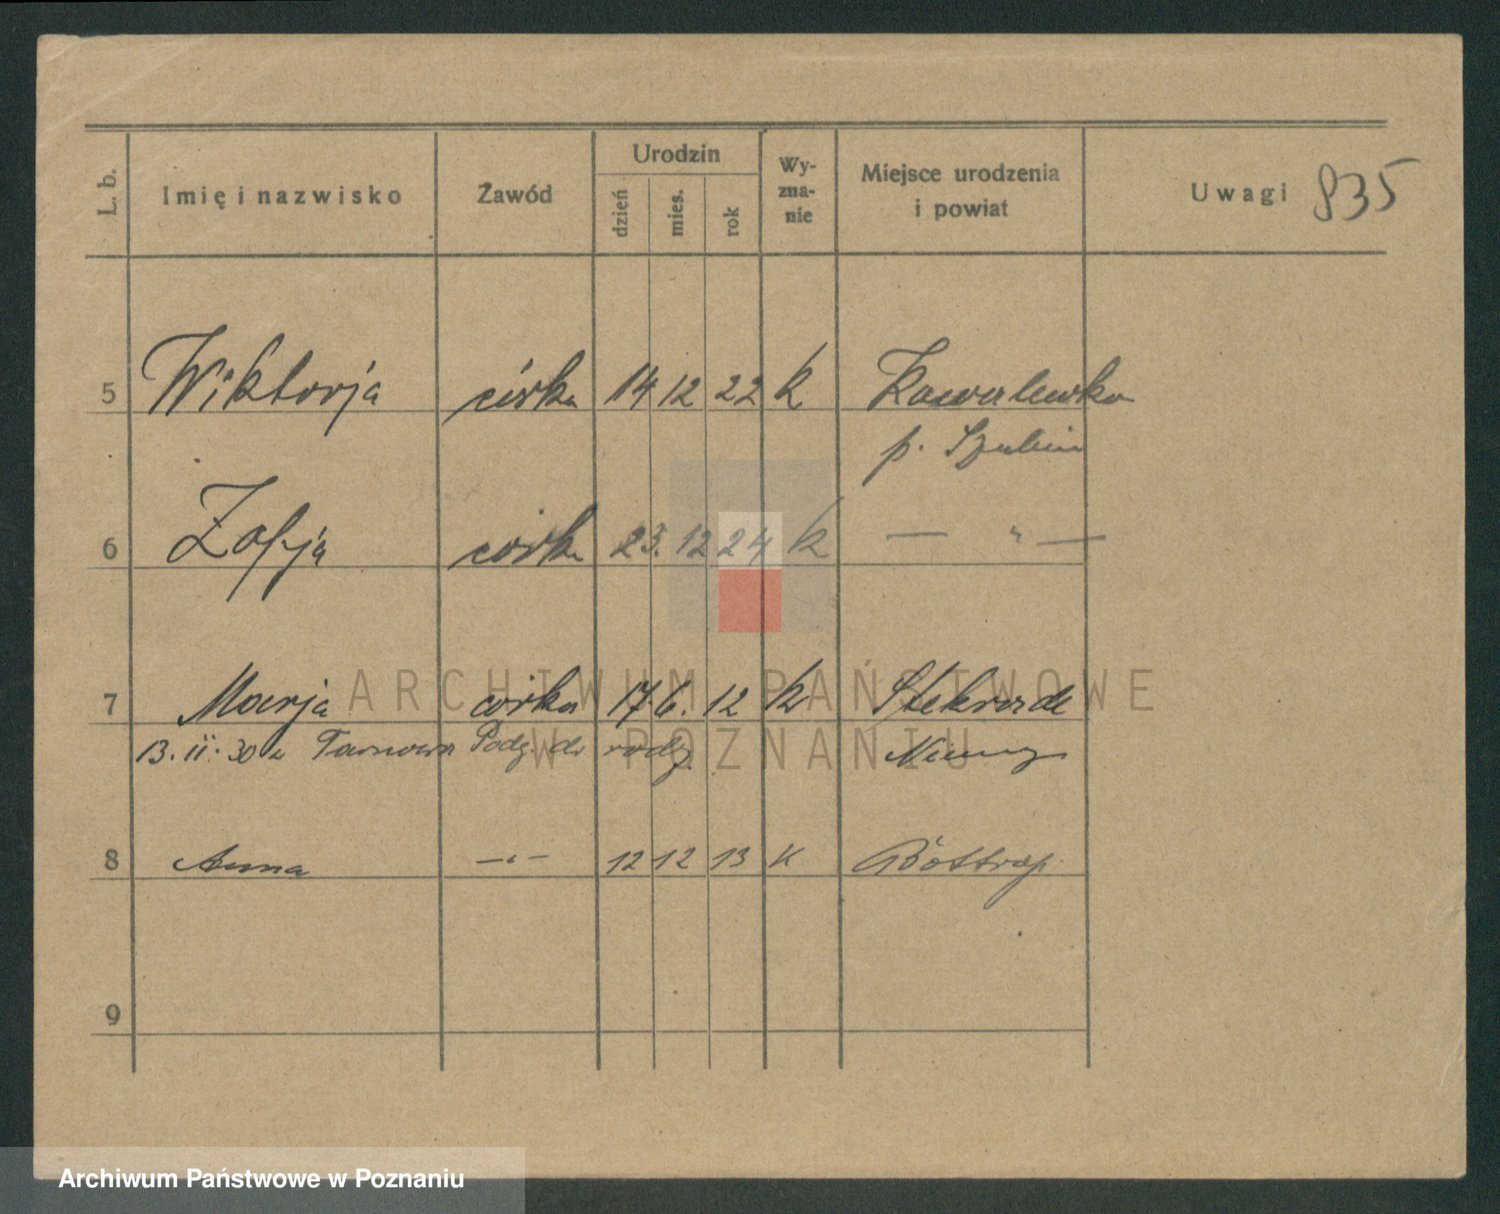 L. b. Imię i nazwisko Zawód Urodzin dzień mies. rok Wy-zna-nie Miejsce urodzenia i powiat Uwagi 835
5 Wiktorja córka 14 12 22 k Kowalewko
p. Szubin
6 Zofja córka 23. 12 24 k — " —
7 Marja córka 17. 6. 12 k
13. II. 30 z Tarnowa Podg. do rodz. Niemcy
8 Anna —"— 12 12 13 k
9
ARCHIWUM PAŃSTWOWE
W POZNANIU
Archiwum Państwowe w Poznaniu